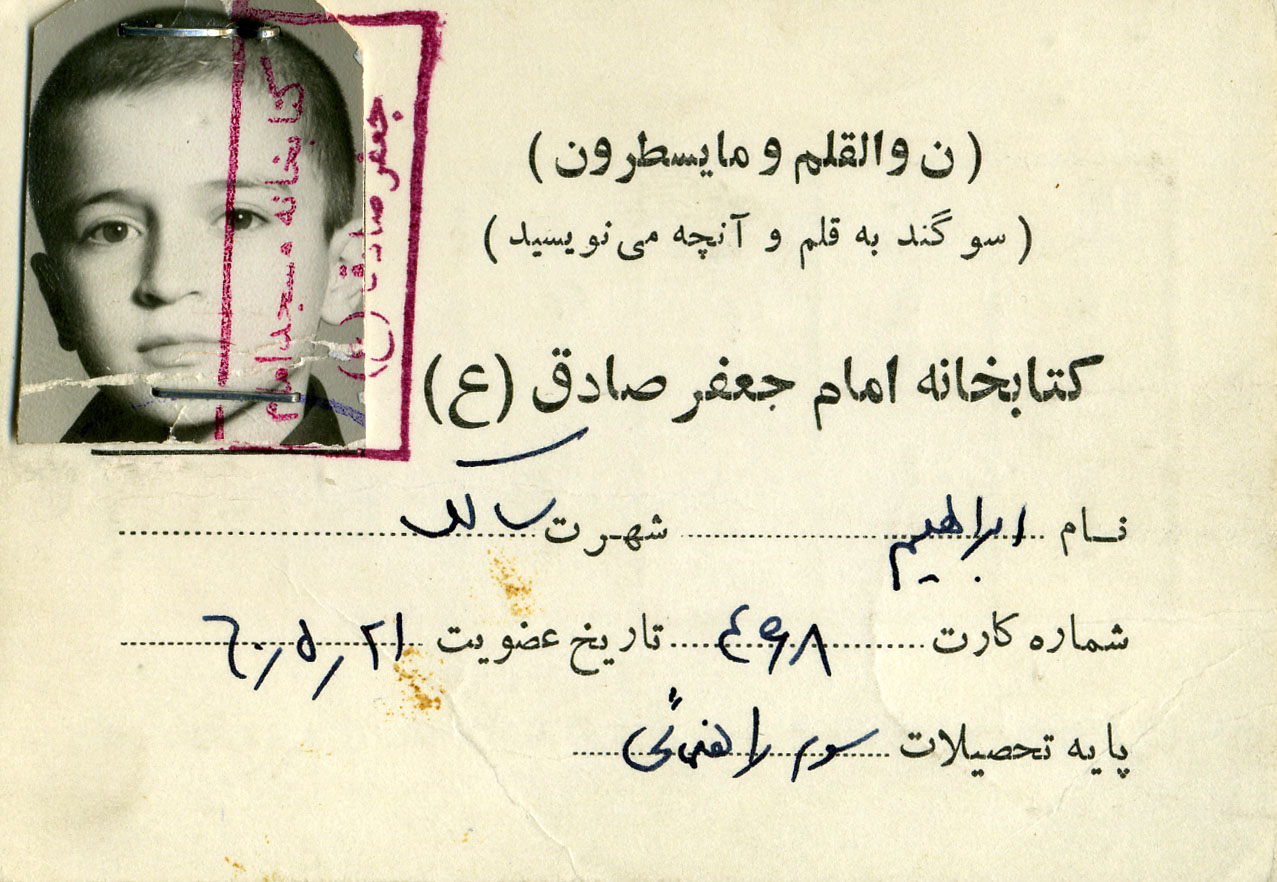 کتابخانه مسجد امام
جعفر صادق (ع)
(ن والقلم و مایسطرون)
(سوگند به قلم و آنچه می‌نویسید)
کتابخانه امام جعفر صادق (ع)
نام ابراهیم شهرت
شماره کارت ۴۹۸ تاریخ عضویت ۶۰/۵/۲۱
پایه تحصیلات سوم راهنمائی